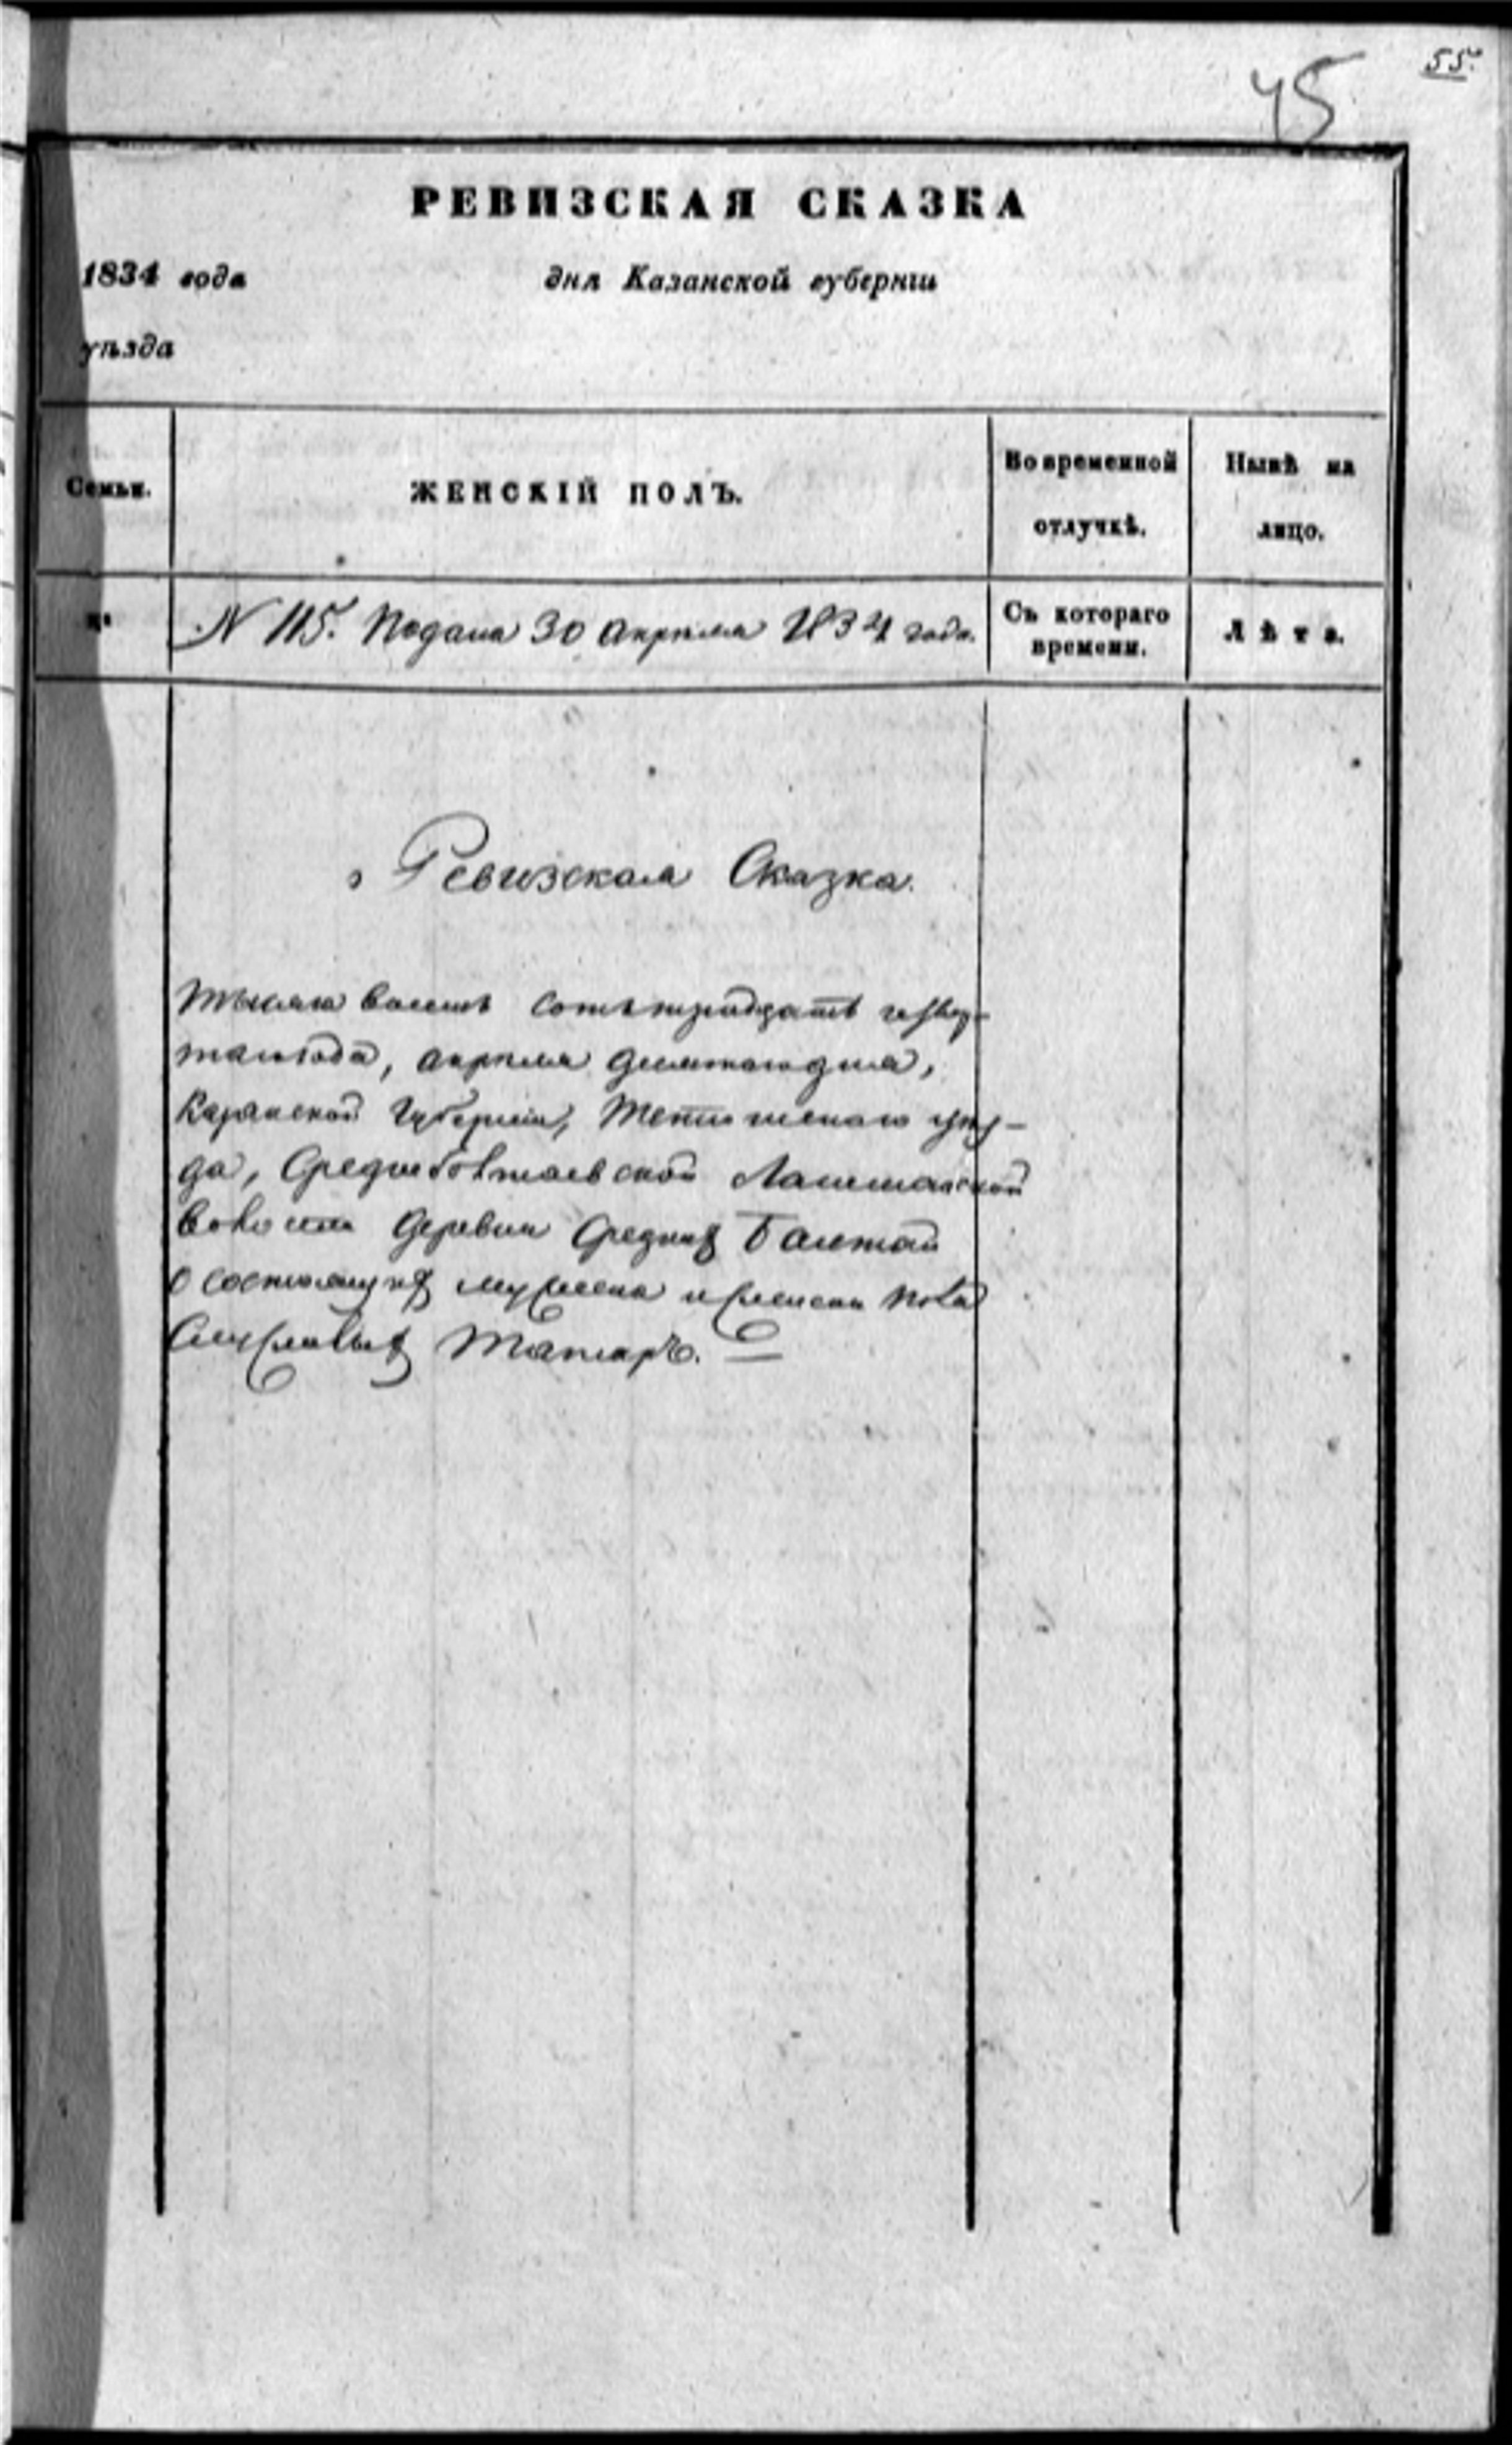 55.
45
РЕВИЗСКАЯ СКАЗКА
1834 года дня Казанской губерніи
уѣзда
Семьи. ЖЕНСКІЙ ПОЛЪ. Во временной отлучкѣ. Нынѣ на лицо.
N 115. Подана 30 апреля 1834 года. Съ котораго времени. Лѣта.
Ревизская Сказка.
Тысяча восемь сотъ тридцать четвер-
таго года, апреля дня,
Казанской Губерніи, Тетюшскаго уѣз-
да, Лашманской
волости деревни Среднихъ Балтай
о состоящихъ мужеска и женска пола
Служилыхъ Татаръ.